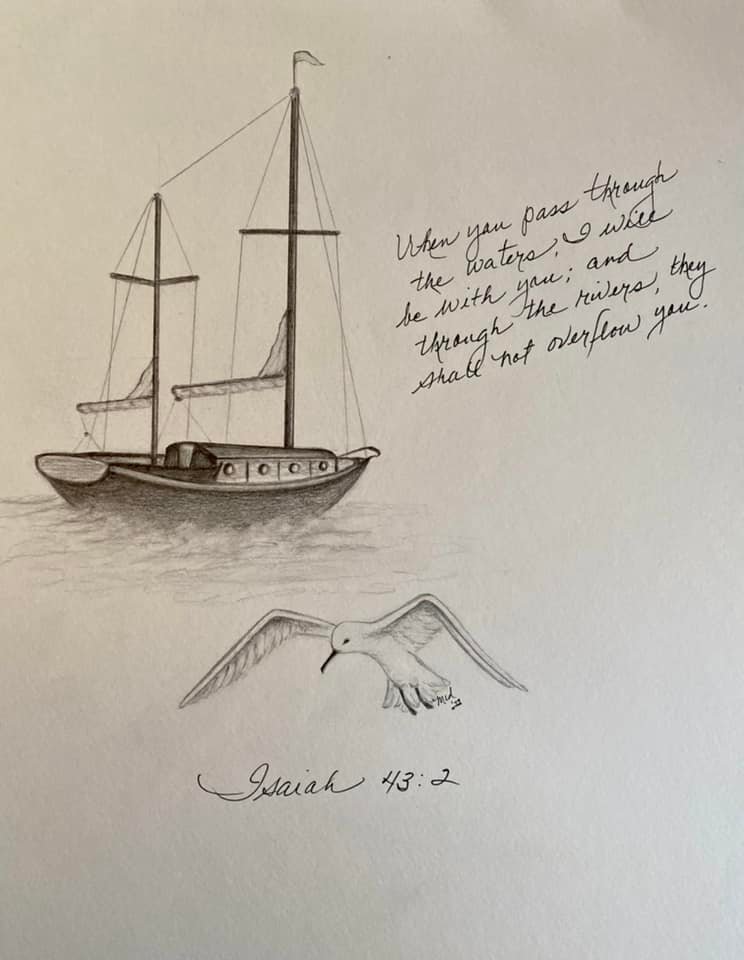 When you pass through
the waters, I will
be with you; and
through the rivers, they
shall not overflow you.
Isaiah 43:2